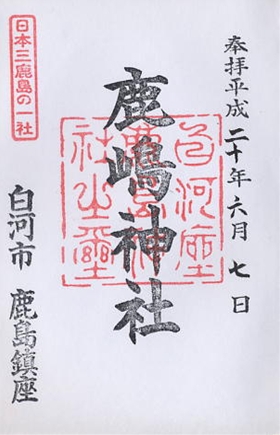 奉拝平成二十年六月七日
鹿嶋神社
白河座
鹿島神
社之璽
日本三鹿島の一社
白河市 鹿島鎮座